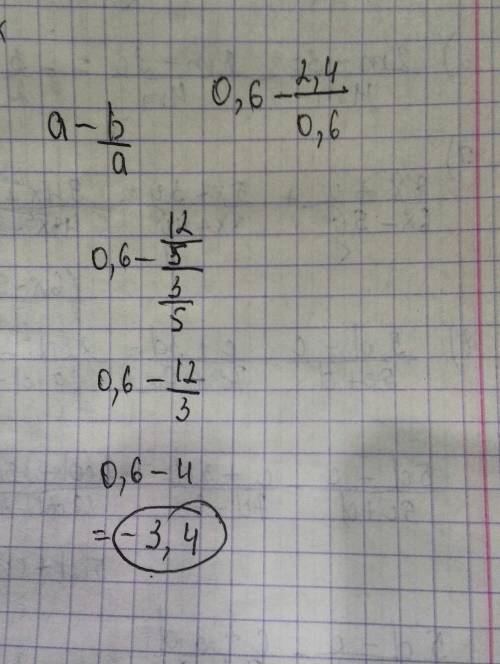 a - b/a
0,6 - 2,4/0,6
0,6 - 12/5/3/5
0,6 - 12/3
0,6 - 4
= -3,4